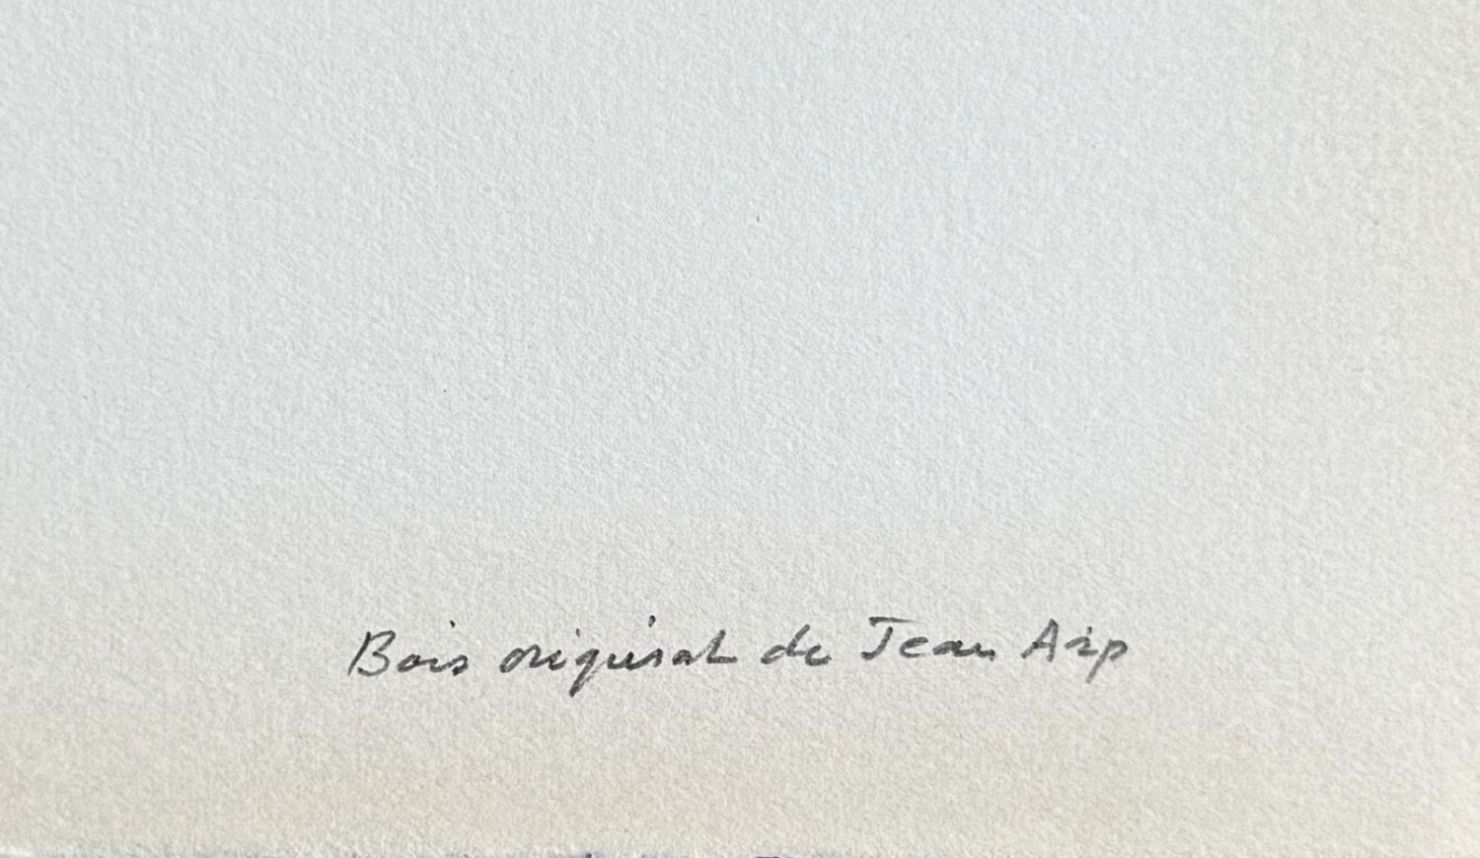 Bois original de Jean Arp